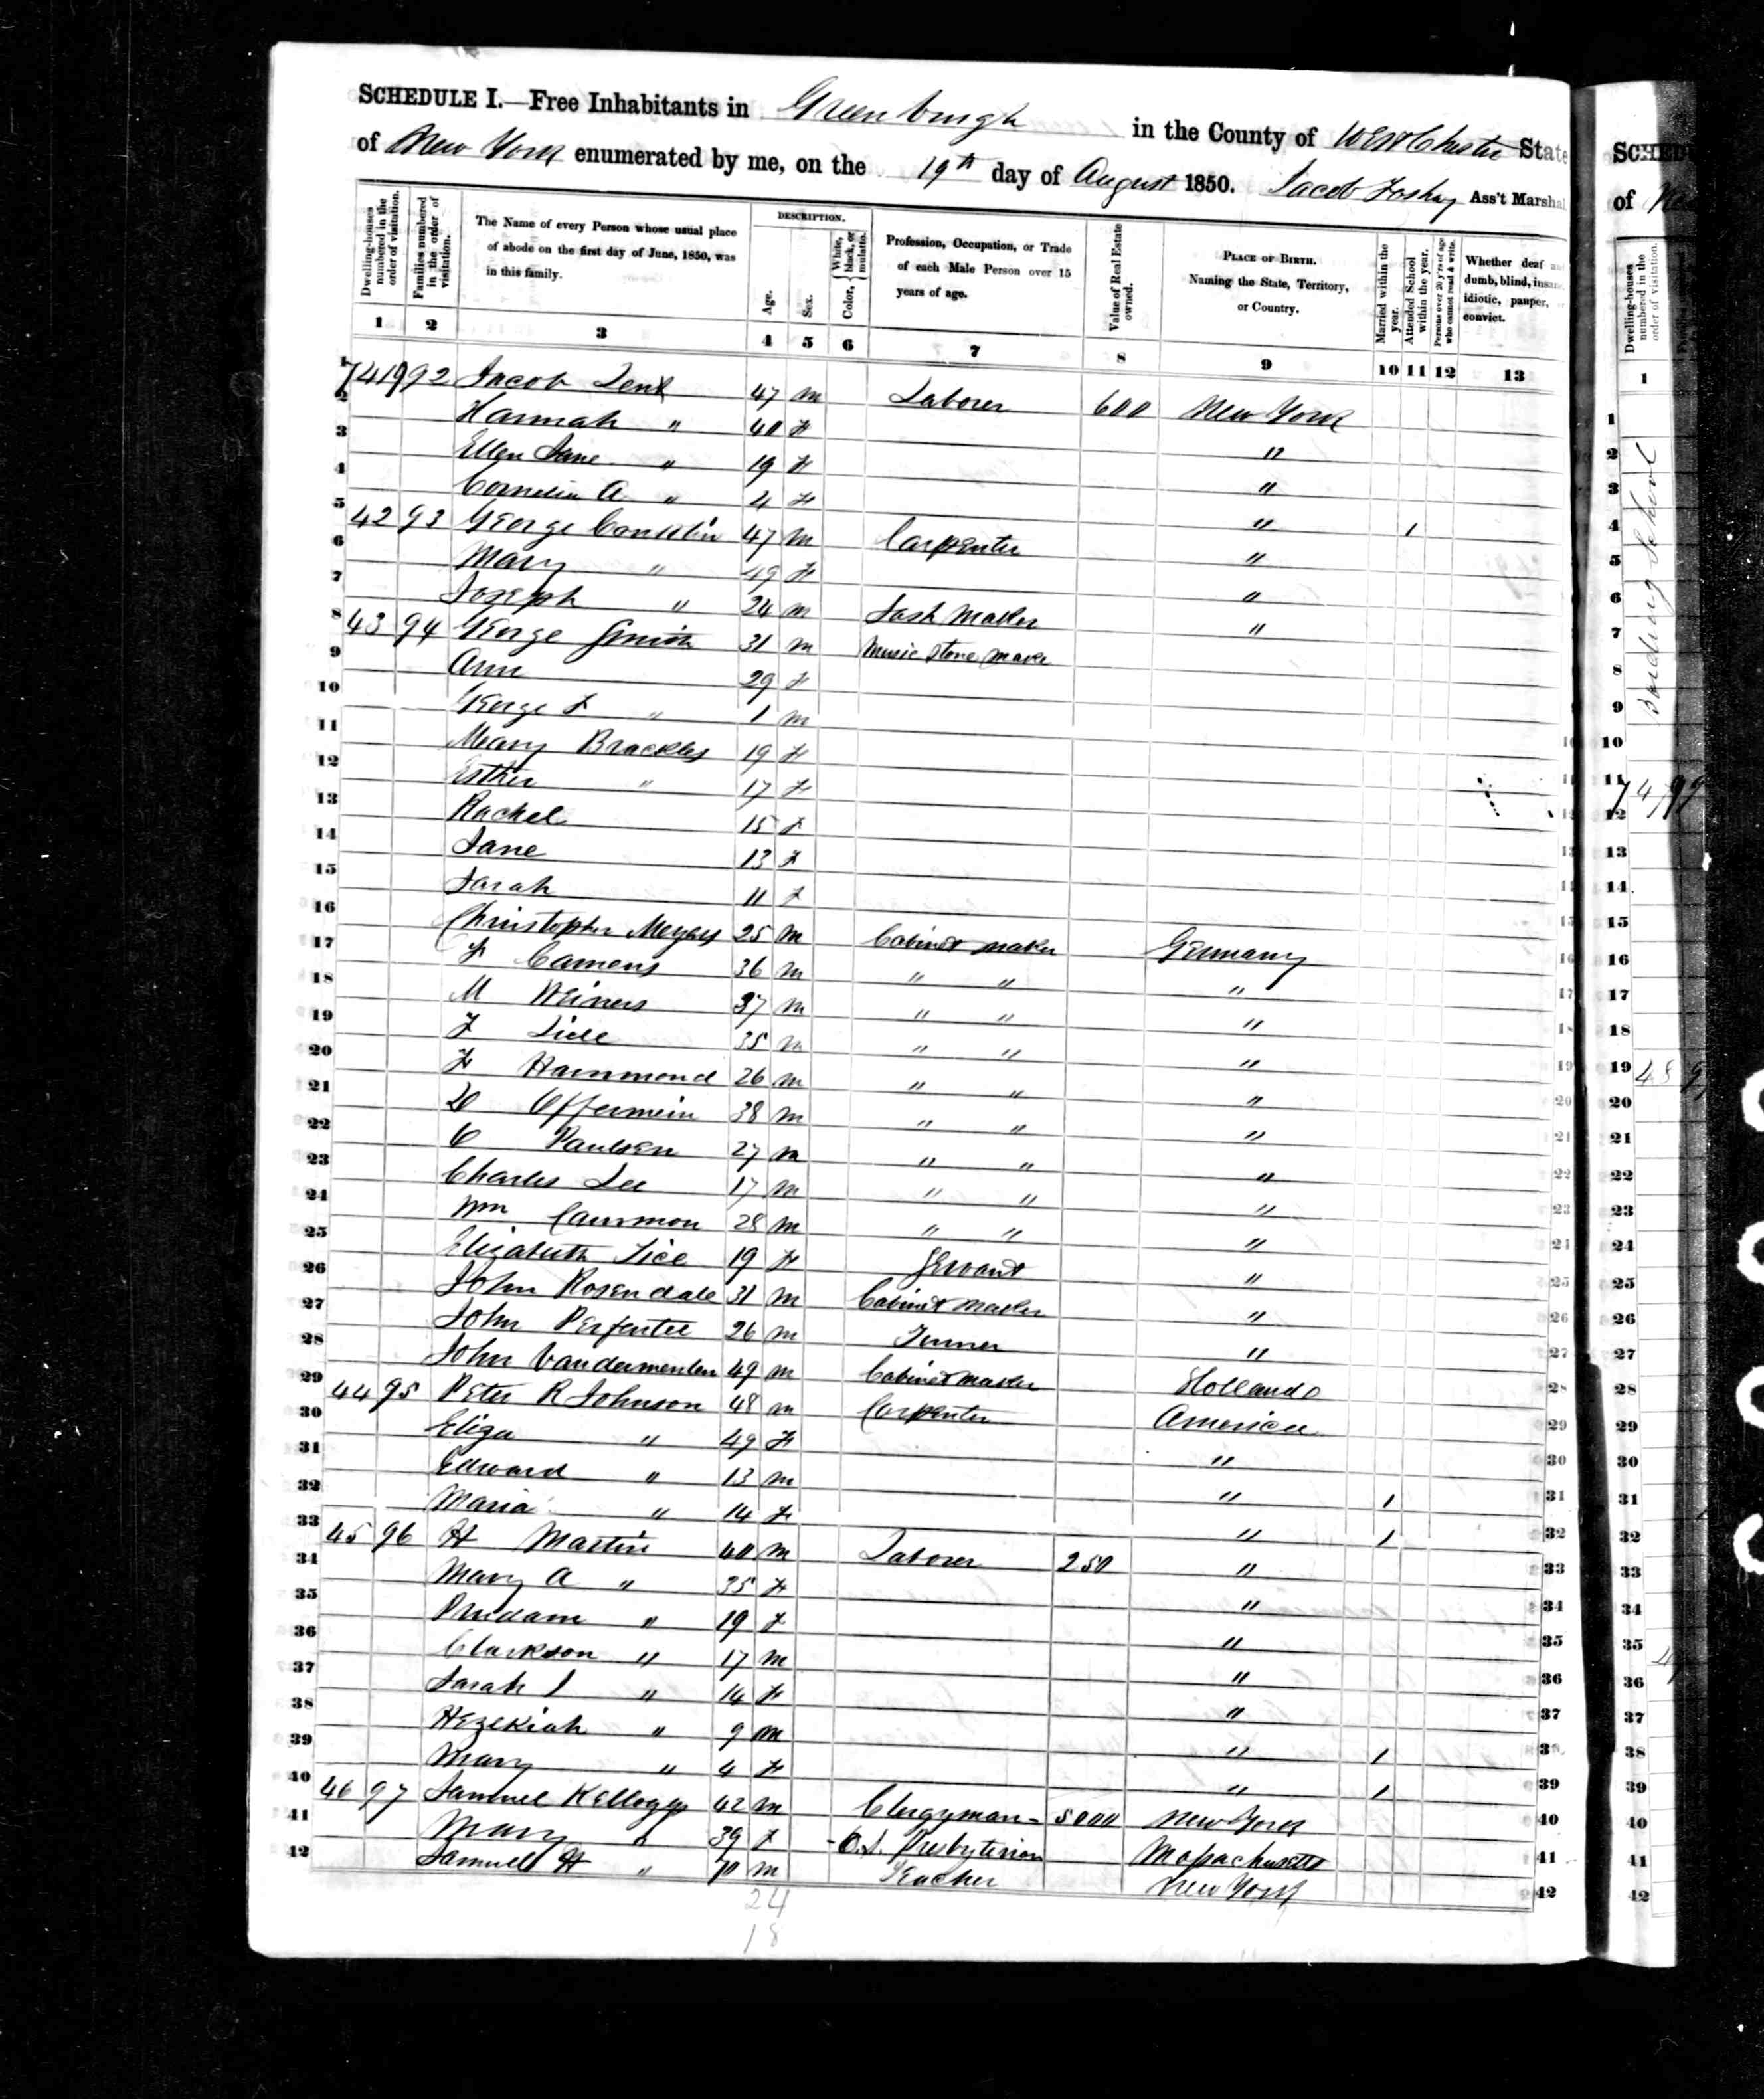 SCHEDULE I.—Free Inhabitants in Greenburgh in the County of WestChester State
of New York enumerated by me, on the 19th day of August 1850. Jacob Foshay Ass't Marshal
Dwelling-houses numbered in the order of visitation.
Families numbered in the order of visitation.
The Name of every Person whose usual place of abode on the first day of June, 1850, was in this family.
DESCRIPTION.
Age.
Sex.
Color, White, black, or mulatto.
Profession, Occupation, or Trade of each Male Person over 15 years of age.
Value of Real Estate owned.
PLACE OF BIRTH. Naming the State, Territory, or Country.
Married within the year.
Attended School within the year.
Persons over 20 y'rs of age who cannot read & write.
Whether deaf and dumb, blind, insane, idiotic, pauper, or convict.
1 2 3 4 5 6 7 8 9 10 11 12 13
1 741 992 Jacob Lent 47 m Laborer 600 New York
2 Hannah " 40 F "
3 Ellen Jane " 19 F "
4 Cornelia A " 4 F " 1
5 42 93 George Conklin 47 m Carpenter "
6 Mary " 49 F "
7 Joseph " 24 m Sash Maker "
8 43 94 George Smith 31 m Music Stone Make
9 Ann 29 F
10 George F " 1 m
11 Mary Brackles 19 F
12 Esther " 17 F
13 Rachel 15 F
14 Jane 13 F
15 Sarah 11 F
16 Christopher Meyers 25 m Cabinet maker Germany
17 F Camens 36 m " " "
18 M Reiners 37 m " " "
19 F 35 m " " "
20 F Hammond 26 m " " "
21 Offermein 38 m " " "
22 C Paulsen 27 m " " "
23 Charles Lee 17 m " " "
24 Wm Caurmon 28 m " " "
25 Elizabeth Tice 19 F Servant "
26 John Rosendale 31 m Cabinet Maker "
27 John 26 m Turner "
28 John Vandermeulen 49 m Cabinet Maker Holland
29 44 95 Peter R Johnson 48 m Carpenter America
30 Eliza " 49 F "
31 Edward " 13 m " 1
32 Maria " 14 F " 1
33 45 96 H Martin 40 m Laborer 250 "
34 Mary A " 35 F "
35 " 19 F "
36 Clarkson " 17 m "
37 Sarah J " 14 F "
38 Hezekiah " 9 m " 1
39 Mary " 4 F " 1
40 46 97 Samuel Kellogg 42 m Clergyman- 5000 New York
41 Mary " 39 F -O.S. Presbyterian Massachusetts
42 Samuel H " 10 m Teacher New York
24
18
SCHED
of
Dwelling-houses numbered in the order of visitation.
1
Boarding School